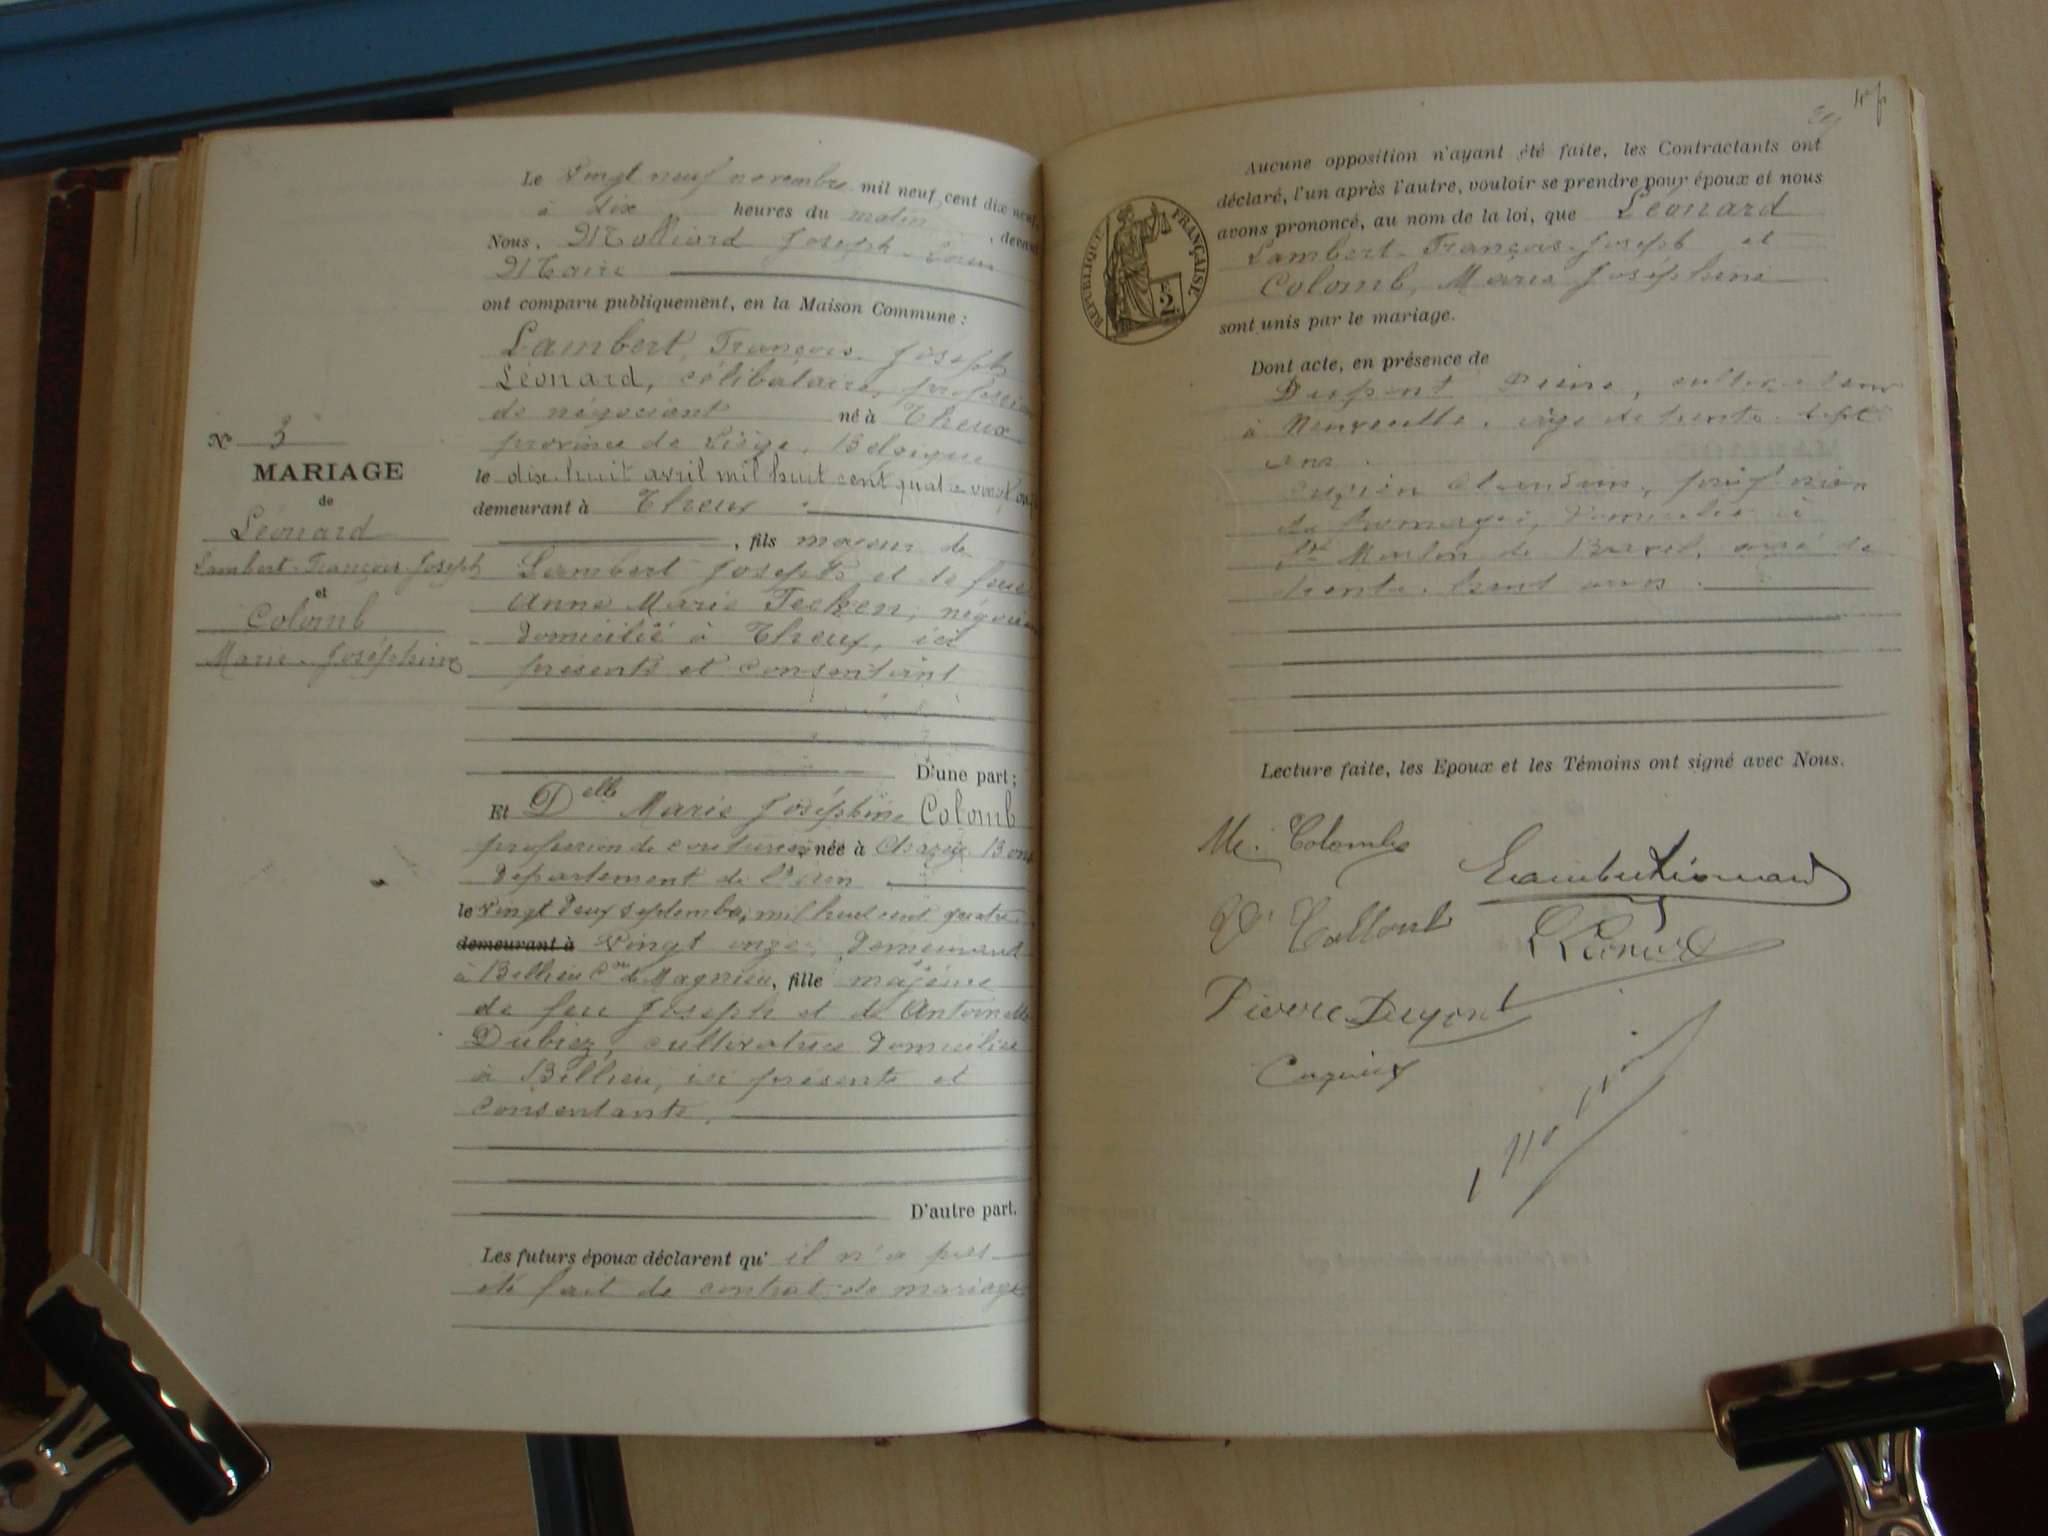 N° 3
MARIAGE
de
Léonard
Lambert-François-Joseph
et
Colomb
Marie-Joséphine
Le Vingt neuf novembre mil neuf cent dix neuf,
à dix heures du matin, devant
Nous, Molliard Joseph-Louis
Maire
ont comparu publiquement, en la Maison Commune :
Lambert, François-Joseph
Léonard, célibataire, profession
de négociant né à Theux
province de Liège, Belgique
le dix-huit avril mil huit cent quatre vingt
demeurant à Theux
, fils majeur de
Lambert Joseph et de feue
Anne Marie Tecken, négociant
domicilié à Theux, ici
présents et consentant
D'une part ;
Et Delle Marie Joséphine Colomb
profession de couturière née à Chazey Bons
département de l'Ain
le Vingt deux septembre mil huit cent quatre
demeurant à Vingt onze, demeurant
à Billieu Cne de Magnieu, fille majeure
de feu Joseph et de Antoinette
Dubiez, cultivatrice domiciliée
à Billieu, ici présente et
consentante.
D'autre part.
Les futurs époux déclarent qu' il n'a pas
été fait de contrat de mariage
Aucune opposition n'ayant été faite, les Contractants ont
déclaré, l'un après l'autre, vouloir se prendre pour époux et nous
avons prononcé, au nom de la loi, que Léonard
Lambert-François-Joseph et
Colomb, Marie Joséphine
sont unis par le mariage.
RÉPUBLIQUE FRANÇAISE
2
Dont acte, en présence de
Dupont Pierre, cultivateur
à , âgé de trente-sept
ans.
profession
de fromager, domicilié à
St Martin de Bavel, âgé de
trente-huit ans.
Lecture faite, les Epoux et les Témoins ont signé avec Nous.
M. Colomb
Lambert Léonard
Pierre Dupont